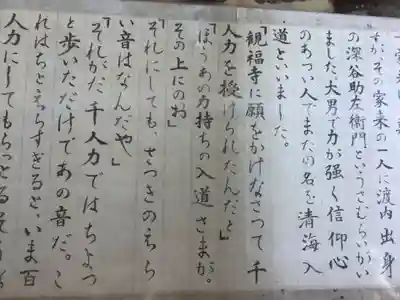 すが、その家来の一人に渡内出身
の深谷助左衛門というさむらいがい
ました。大男で力が強く信仰心
のあつい人でまたの名を清海入
道といいました。
「観福寺に願をかけなさって千
人力を授けられたんだと」
「ほうあの力持ちの入道さまが。
その上にのお」
「それにしても、さっきのえら
い音はなんだや」
「それがだ千人力ではちょっ
と歩いただけであの音だ。こ
れはちとえらすぎると、いま百
人力にしてもらっとる